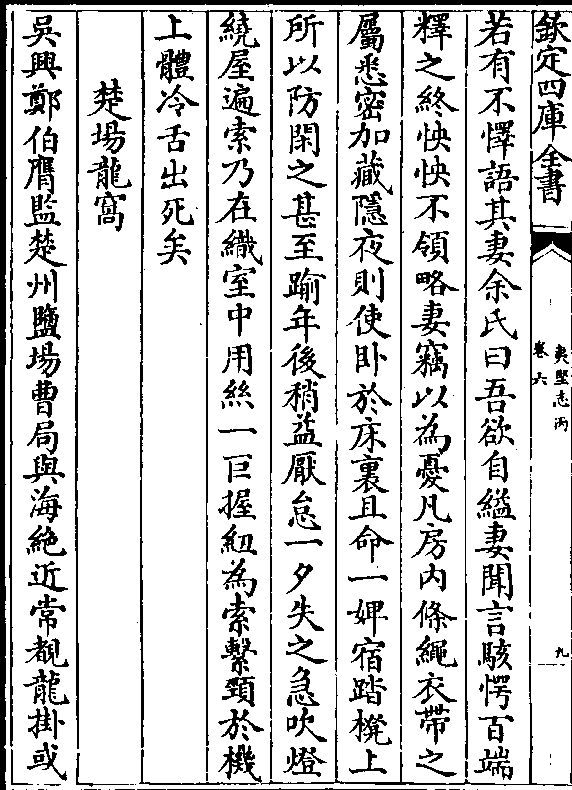 欽定四庫全書
夷堅志丙
卷六
九
若有不懌語其妻余氏曰吾欲自縊妻聞言駭愕百端
釋之終怏怏不領略妻竊以為憂凡房内條繩衣帶之
屬悉宻加藏隱夜則使卧於床裏且命一婢宿踏櫈上
所以防閑之甚至踰年後稍益厭怠一夕失之急吹燈
繞屋遍索乃在織室中用絲一巨握紐為索繫頸於機
上體冷舌出死矣
楚場龍窩
吳興鄭伯膺監楚州鹽場曹局與海絶近常覩龍掛或